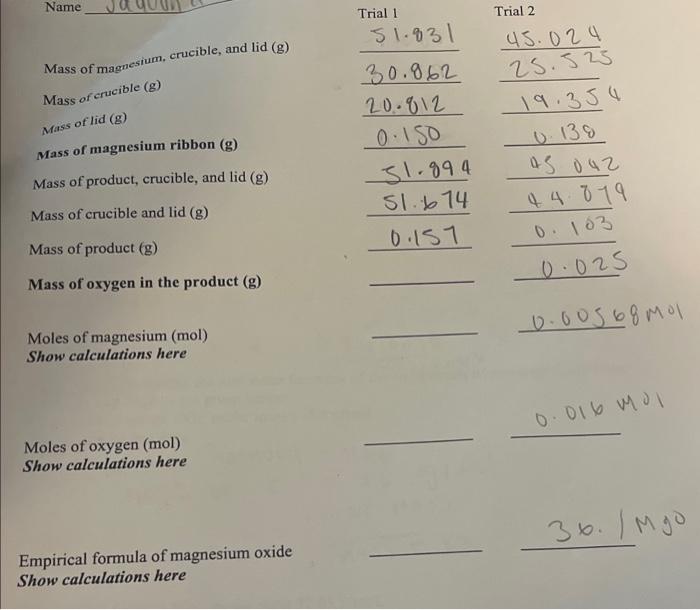 Name Jaquon
Trial 1 Trial 2
Mass of magnesium, crucible, and lid (g) 51.831 45.024
Mass of crucible (g) 30.862 25.525
Mass of lid (g) 20.812 19.354
Mass of magnesium ribbon (g) 0.150 0.138
Mass of product, crucible, and lid (g) 51.894 45.042
Mass of crucible and lid (g) 51.674 44.879
Mass of product (g) 0.157 0.163
Mass of oxygen in the product (g) 0.025
Moles of magnesium (mol) 0.00568 mol
Show calculations here
Moles of oxygen (mol) 0.016 mol
Show calculations here
Empirical formula of magnesium oxide 36. / MgO
Show calculations here